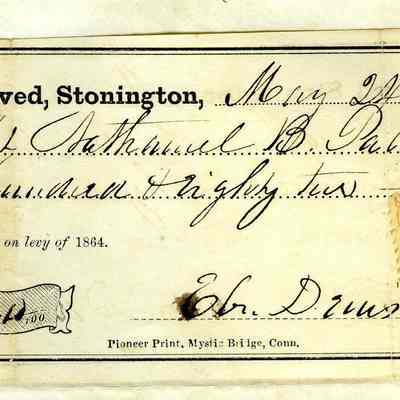 ved, Stonington, May 24
Nathaniel B. Pal
hundred & Eighty two
on levy of 1864.
.00
Ebr. Denis
Pioneer Print, Mystic Bridge, Conn.